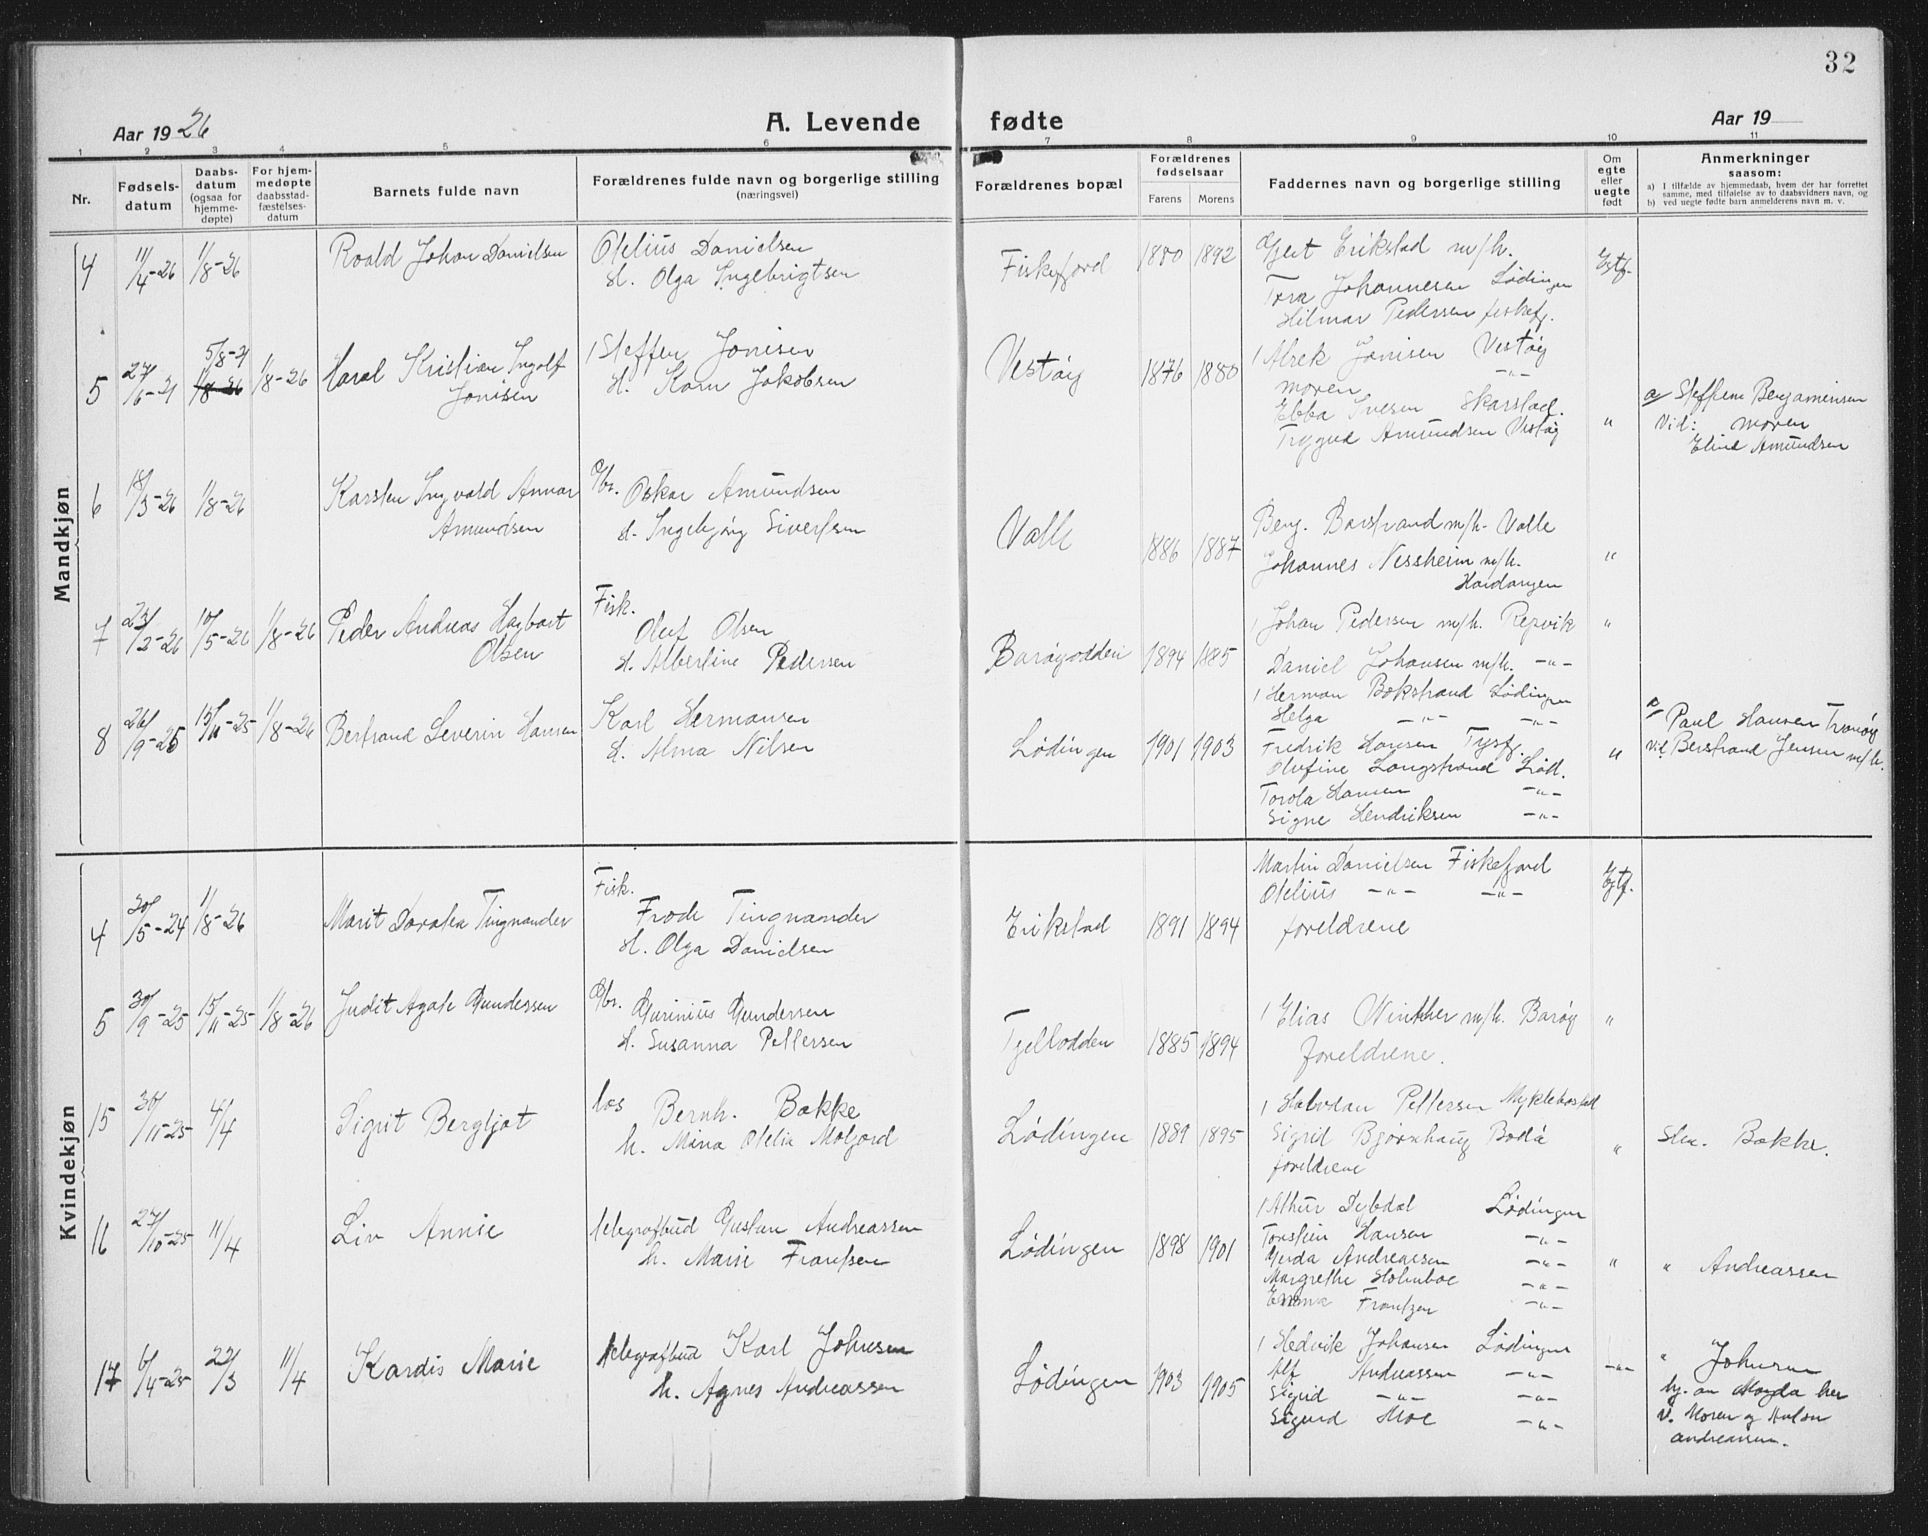 32
Aar 1926 A. Levende fødte Aar 19
1 2 3 4 5 6 7 8 9 10 11
Nr.
Fødsels-
datum
Daabs-
datum
(ogsaa for
hjemme-
døpte)
For hjem-
medøpte
daabsstad-
fæstelses-
datum
Barnets fulde navn
Forældrenes fulde navn og borgerlige stilling
(næringsvei)
Forældrenes bopæl
Forældrenes
fødselsaar
Farens Morens
Faddernes navn og borgerlige stilling
Om
egte
eller
uegte
født
Anmerkninger
saasom:
a) I tilfælde av hjemmedaab, hvem der har forrettet
samme, med tilføielse av to daabsvidners navn, og
b) ved uegte fødte barn anmelderens navn m. v.
Mandkjøn
4 11/4-26 1/8-26 Roald Johan Danielsen
Otelius Danielsen
H. Olga Ingebrigtsen
Fiskefjord 1880 1892
Gjert Erikstad m/h.
Tora Johannesen Lødingen
Hilmar Pedersen fiskefj.
Egtf.
5 27/6-21 5/8-21 1/8-26 1/8-26 Haral Kristian Ingolf
Jonisen
Steffen Jonisen
H. Karn Jakobsen
Vestøy 1876 1880
1 Alrek Jonisen Vestøy
moren -"-
Ebba Ivesen Skarstad.
Trygve Amundsen Vestøy
"
a/ Steffine Benjaminsen
Vid: moren
Eline Amundsen
6 18/3-26 1/8-26 Karsten Ingvald Annar
Amundsen
Gbr. Oskar Amundsen
H. Ingebjørg Sivertsen
Valle 1886 1887
Berg. Barstrand m/h. Valle
Johannes Nessheim m/h.
Hardangen
"
7 23/2-26 10/5-26 1/8-26 Peder Andreas Hagbart
Olsen
Fisk.
Oluf Olsen
H. Albertine Pedersen
Barøyodden 1894 1885
1 Johan Pedersen m/h. Repvik
Daniel Johansen m/h. -"-
"
8 26/9-25 15/11-25 1/8-26 Bertrand Severin Hansen
Karl Hermansen
H. Alma Nilsen
Lødingen 1901 1903
1 Herman Bokstrand Lødingen
Helga -"- -"-
Fredrik Hansen Tysfj.
Olufine Langstrand Lød.
Torola Hansen -"-
Signe Hendriksen -"-
"
a/ Paul Hansen Tranøy
Vid. Bertrand Jensen m/h.
Kvindekjøn
4 20/5-24 1/8-26 Marit Dorotea Tingnander
Fisk.
Frode Tingnander
H. Olga Danielsen
Erikstad 1891 1894
Martin Danielsen Fiskefjord
Otelius -"- -"-
foreldrene
Egtf.
5 30/9-25 15/11-25 1/8-26 Judit Agate Gundersen
Gbr. Gurinius Gundersen
H. Susanna Pettersen
Tjellodden 1885 1894
1 Elias Winther m/h. Barøy
foreldrene.
"
15 30/11-25 4/4 Sigrit Bergljot
los Bernh. Bakke
h. Mina Otelia Moljord
Lødingen 1889 1895
1 Halvdan Pettersen Myklebostad
Sigrid Bjørnhaug Bodø
foreldrene
"
Sln. Bakke.
16 27/10-25 11/4 Liv Annie
telegrafbud Gustav Andreassen
h. Marie Frantsen
Lødingen 1898 1901
1 Athur Dybdal Lødingen
Torstein Hansen -"-
Gerda Andreassen -"-
Margrethe Holmboe -"-
Emma Frantzen -"-
"
" Andreassen
17 6/4-25 22/3 11/4 Kardis Marie
telegrafbud Karl Johnsen
h. Agnes Andreassen
Lødingen 1903 1905
1 Hedvik Johansen Lødingen
Alf Andreassen -"-
Sigrid -"- -"-
Sigurd Moe -"-
-"-
" Johnsen
v. Moren og
andreassen.